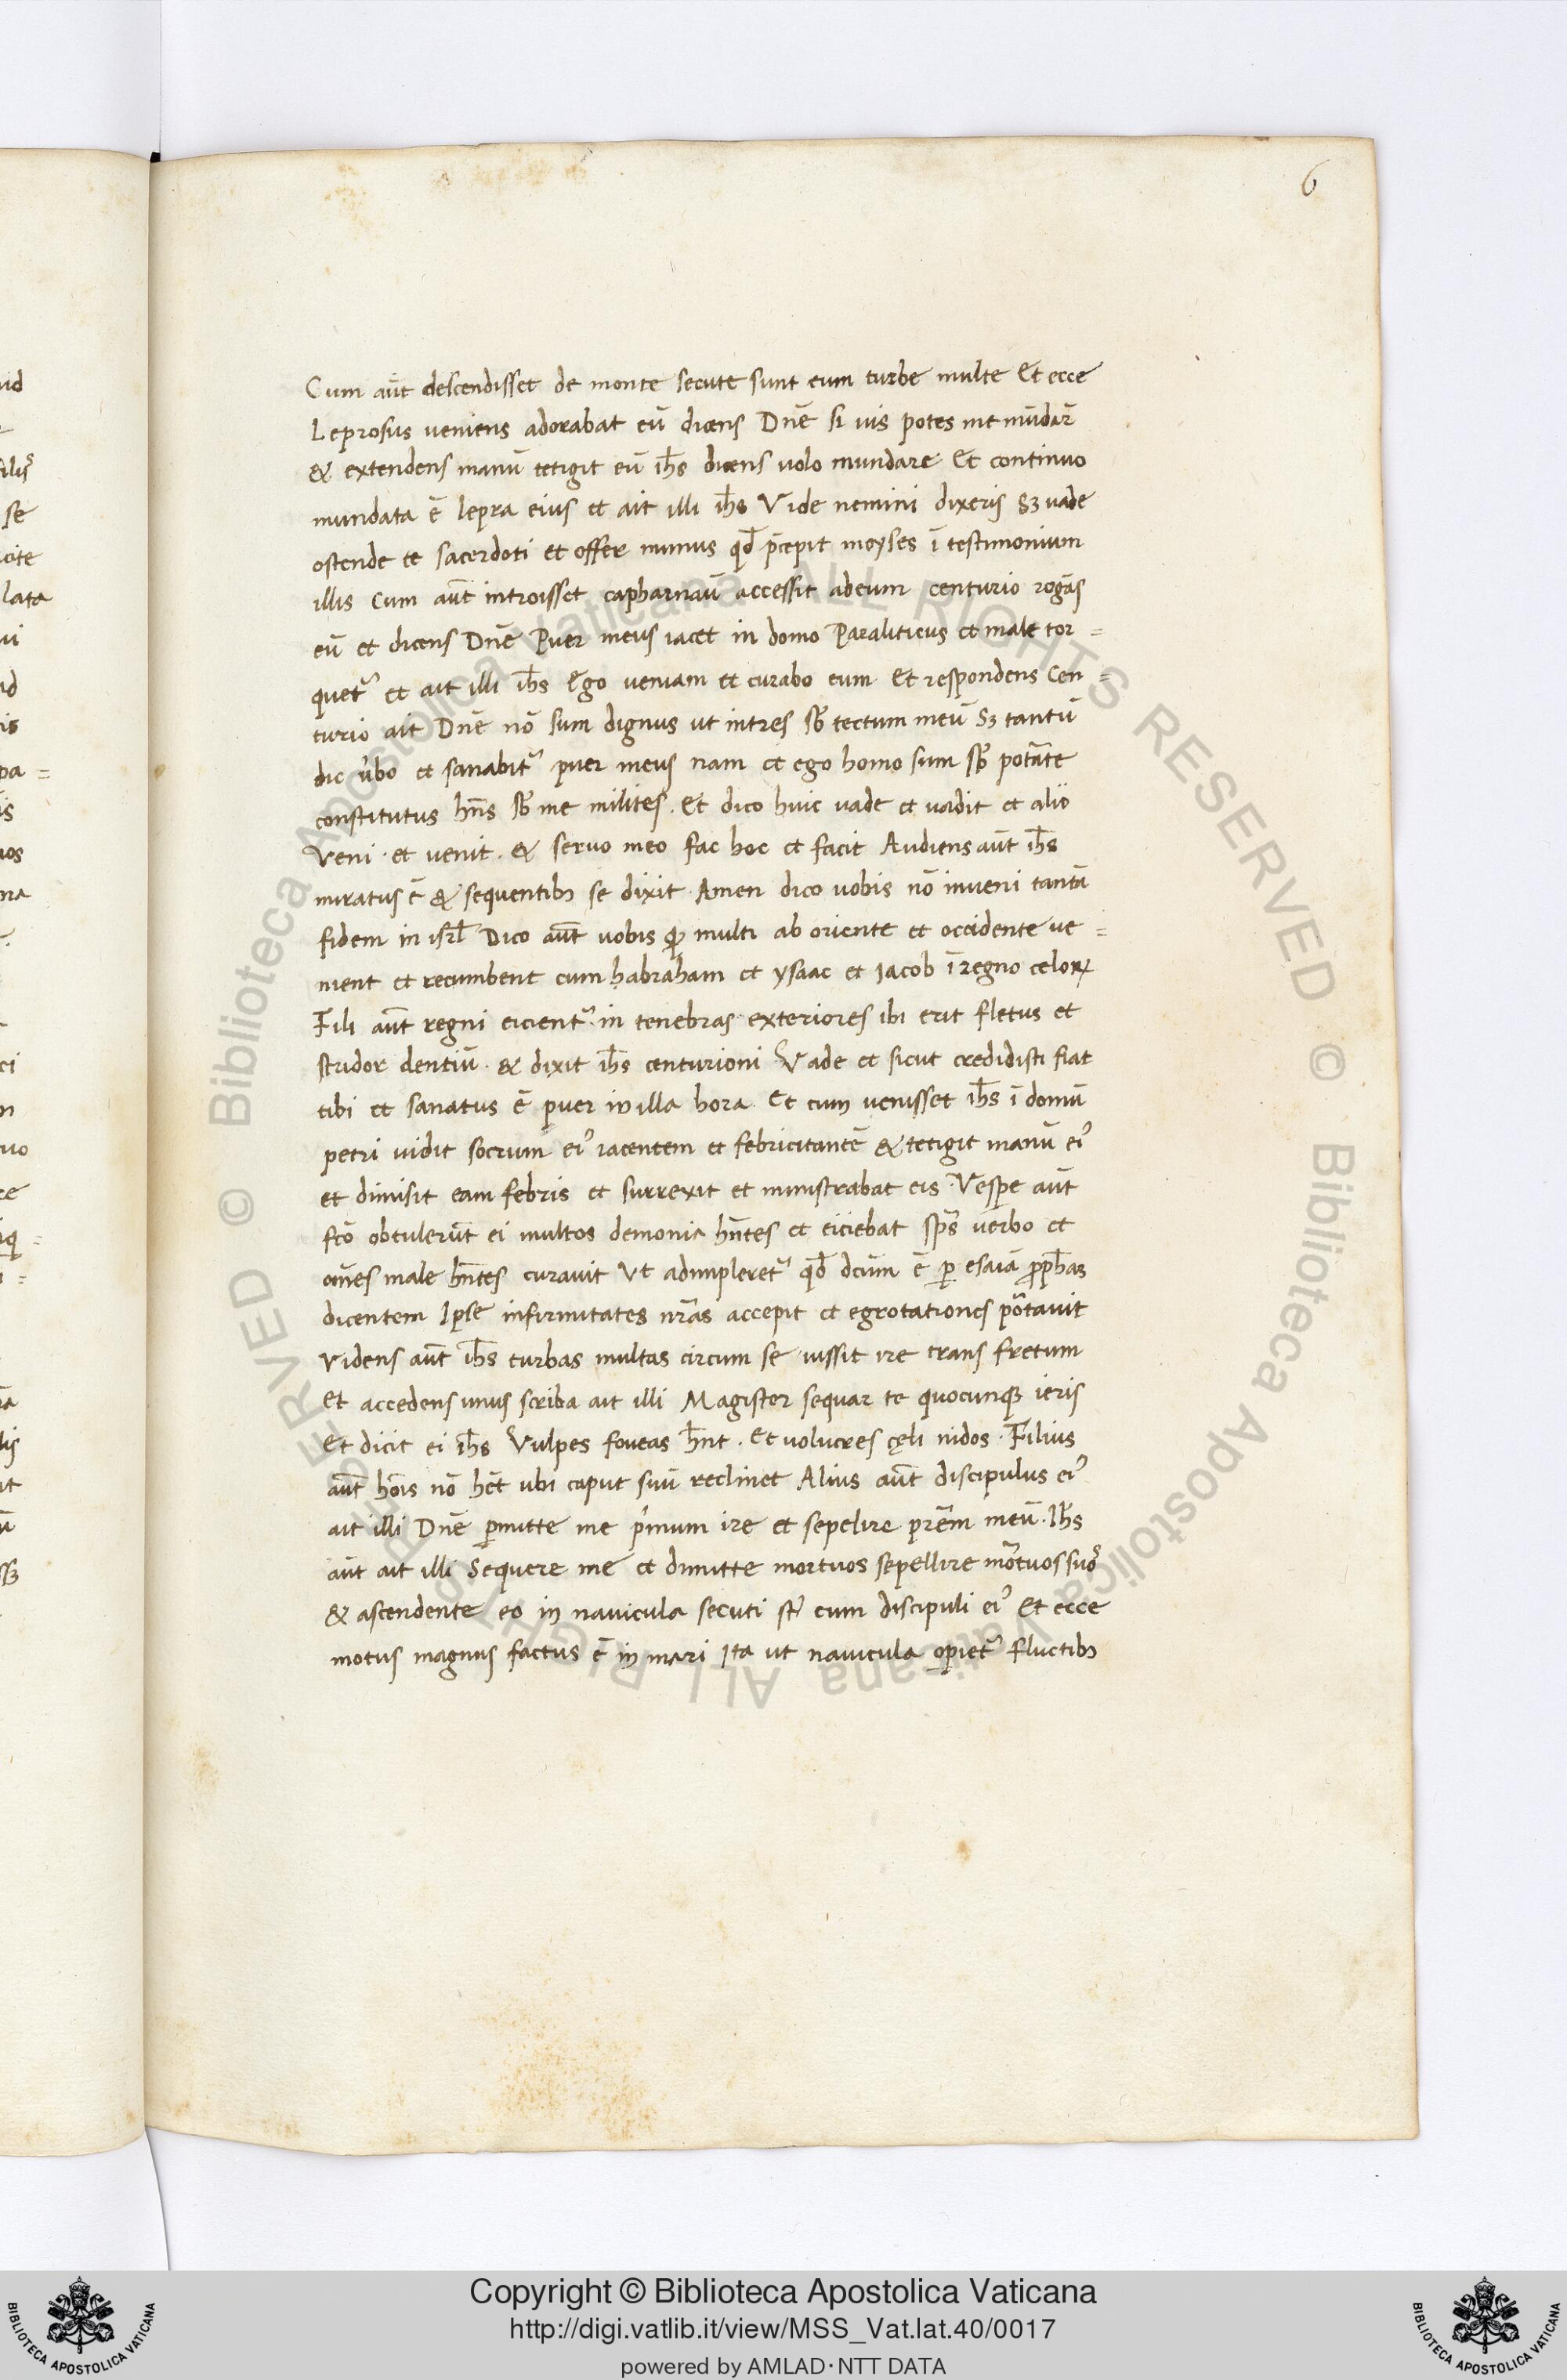 6
Cum aūt descendisset de monte secute sunt eum turbe multe Et ecce
Leprosus veniens adorabat eū dicens Dn̄e si uis potes me mūdar̄
& extendens manū tetigit eū ih̄s dicens uolo mundare Et continuo
mundata ē lepra eius et ait illi ih̄s Vide nemini dixeris Sꝫ uade
ostende te sacerdoti et offer munus qd̄ p̄cepit moyses ī testimonium
illis Cum aūt introisset capharnaū accessit adeum centurio rogās
eū et dicens Dn̄e Puer meus iacet in domo Paraliticus et male tor=
quet᷑ et ait illi ih̄s Ego ueniam et curabo eum Et respondens Cen=
turio ait Dn̄e nō sum dignus ut intres sb̄ tectum meū Sꝫ tantū
dic u̓bo et sanabit᷑ puer meus nam et ego homo sum sb̄ potāte
constitutus hn̄s sb̄ me milites. Et dico huic uade et uadit et alio
Veni · et venit. & seruo meo fac hoc et facit Audiens aūt ih̄s
miratus ē & sequentibꝫ se dixit Amen dico uobis nō inueni tantā
fidem in isrl̄ Dico aūt uobis qꝫ multi ab oriente et occidente ue=
nient et recumbent cum habraham et ysaac et Iacob ī regno celoꝝ
Fili aūt regni eicient᷑ in tenebras exteriores ibi erit fletus et
stridor dentiū · & dixit ih̄s centurioni Vade et sicut credidisti fiat
tibi et sanatus ē puer in illa hora Et cum uenisset ih̄s ī domū
petri uidit socrum eiꝰ iacentem et febricitantē & tetigit manū eiꝰ
et dimisit eam febris et surrexit et ministrabat eis · Vespe aūt
fc̄o obtulerūt ei multos demonia hn̄tes et eiciebat sp̄s uerbo et
om̄es male hn̄tes curauit Vt adimpleret᷑ qd̄ dc̄um ē ꝑ esaiā ꝓph̄aꝫ
dicentem Ipse infirmitates nr̄as accepit et egrotationes po᷑tauit
Videns aūt ih̄s turbas multas circum se iussit ire trans fretum
Et accedens unus scriba ait illi Magister sequar te quocunqꝫ ieris
Et dicit ei ih̄s Vulpes foueas h̄nt. Et uolucres cęli nidos · Filius
aūt hōis nō het̄ ubi caput suū reclinet Alius aūt discipulus eiꝰ
ait illi Dn̄e ꝑmitte me p̓mum ire et sepelire pr̄em meū. Ih̄s
aūt ait illi Sequere me et dimitte mortuos sepellire mo᷑tuos suoꝰ
& ascendente eo in nauicula secuti st̄ eum discipuli eiꝰ Et ecce
motus magnus factus ē in mari Ita ut nauicula opiret᷑ fluctibꝫ
Copyright © Biblioteca Apostolica Vaticana
http://digi.vatlib.it/view/MSS_Vat.lat.40/0017
powered by AMLAD·NTT DATA